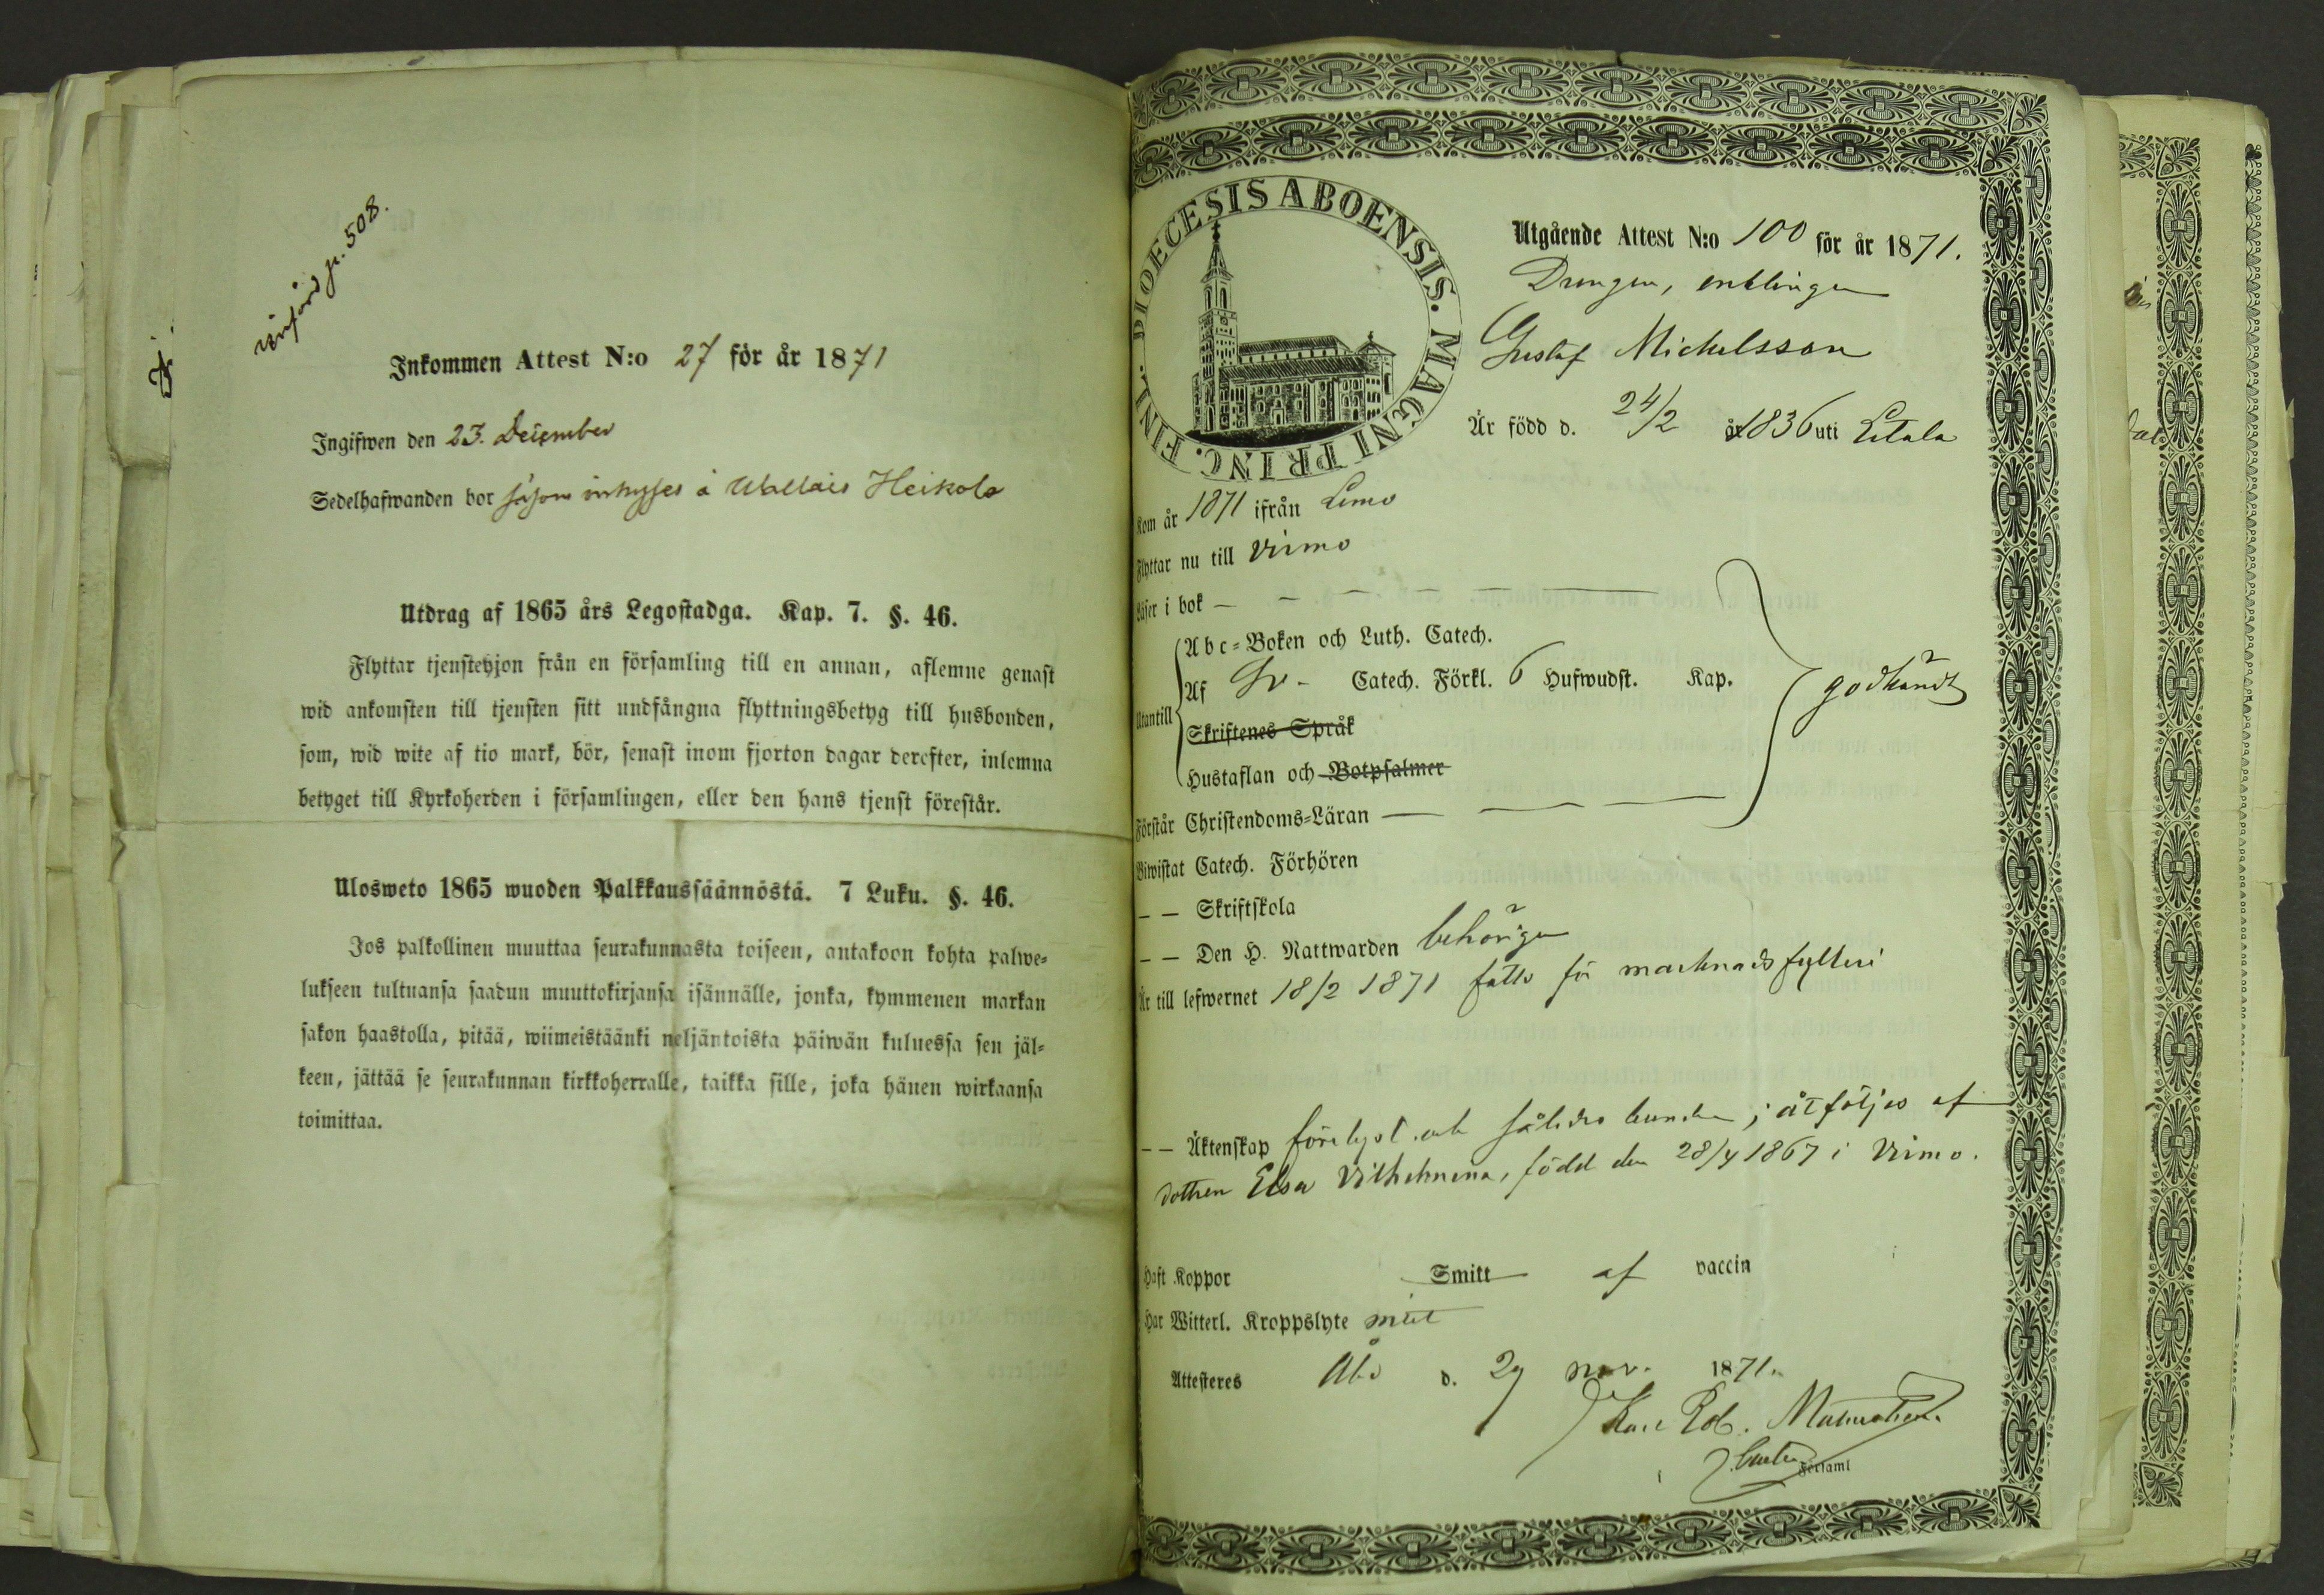 införd p. 508.
Inkommen Attest N:o 27 för år 1871
Ingifwen den 23. December
Sedelhafwanden bor såsom inhyses å Wallais Heikola
Utdrag af 1865 års Legostadga. Kap. 7. §. 46.
Flyttar tjenstehjon från en församling till en annan, aflemne genast
wid ankomsten till tjensten sitt undfångna flyttningsbetyg till husbonden,
som, wid wite af tio mark, bör, senast inom fjorton dagar derefter, inlemna
betyget till Kyrkoherden i församlingen, eller den hans tjenst förestår.
Ulosweto 1865 wuoden Palkkaussäännöstä. 7 Luku. §. 46.
Jos palkollinen muuttaa seurakunnasta toiseen, antakoon kohta palwe-
lukseen tultuansa saadun muuttokirjansa isännälle, jonka, kymmenen markan
sakon haastolla, pitää, wiimeistäänki neljäntoista päiwän kuluessa sen jäl-
keen, jättää se seurakunnan kirkkoherralle, taikka sille, joka hänen wirkaansa
toimittaa.
DIOECESIS ABOENSIS. MAGNI PRINC. FINL.
Utgående Attest N:o 100 för år 1871.
Drengen, enklingen
Gustaf Michelsson
Är född d. 24/2 år 1836 uti Letala
Kom år 1871 ifrån Lemo
Flyttar nu till Virmo
Läser i bok — — — — —
Abc-Boken och Luth. Catech.
Utantill Af Sv- Catech. Förkl. 6 Hufwudst. Kap. godkändt
Skriftenes Språk
Hustaflan och Botpsalmer
Förstår Christendoms-Läran — — — —
Biwistat Catech. Förhören
— — Skriftskola
— — Den H. Nattwarden behörigen
Är till lefwernet 18/2 1871 fälld för marknadsfylleri
— — Äktenskap förelyst och således bunden; åtföljes af
dottren Elsa Vilhelmina, född den 28/4 1867 i Virmo.
Haft Koppor Smitt af vaccin
Har Witterl. Kroppslyte intet
Attesteres Åbo d. 29 nov. 1871.
Karl Rob. Malmström
Församl